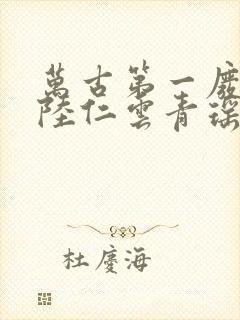 萬古第一廢
陸仁雲青瑶
杜慶海